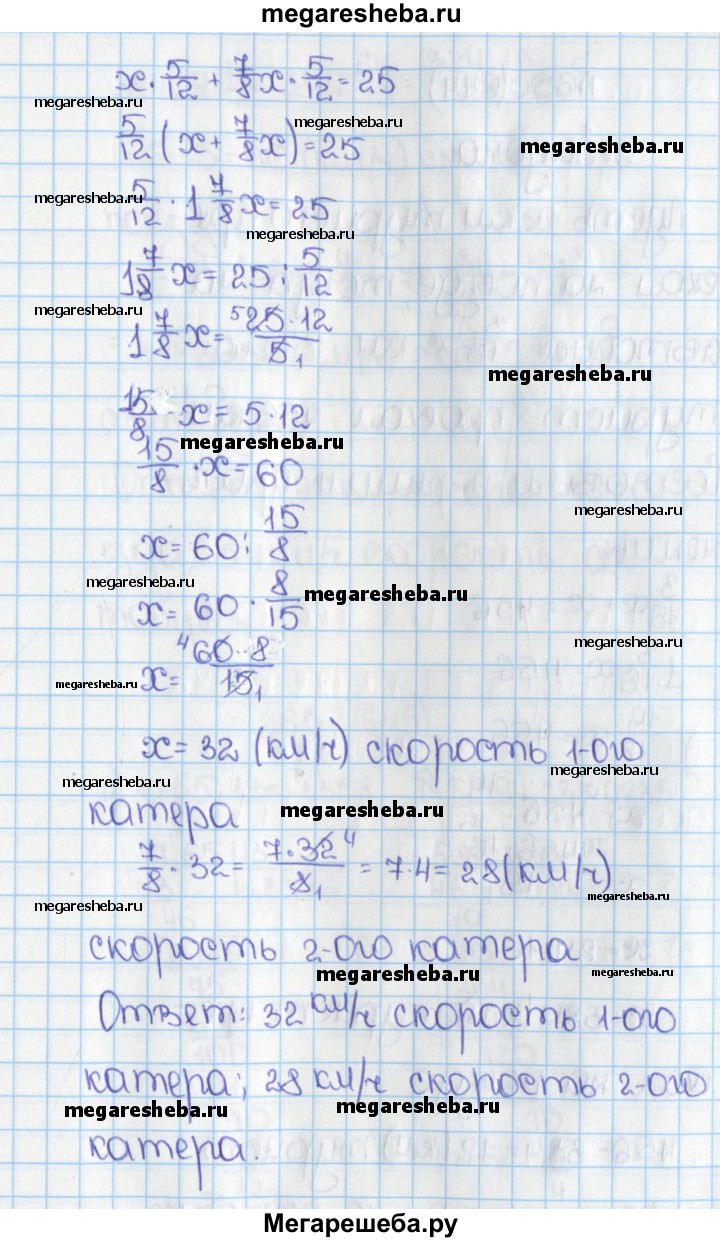 megaresheba.ru
x · 5/12 + 7/8 x · 5/12 = 25
megaresheba.ru
megaresheba.ru
5/12 (x + 7/8 x) = 25
megaresheba.ru
megaresheba.ru
5/12 · 1 7/8 x = 25
megaresheba.ru
1 7/8 x = 25 : 5/12
megaresheba.ru
1 7/8 x = ⁵25·12/5₁
megaresheba.ru
15/8 · x = 5·12
megaresheba.ru
15/8 · x = 60
megaresheba.ru
x = 60 : 15/8
megaresheba.ru
megaresheba.ru
x = 60 · 8/15
megaresheba.ru
x = ⁴60·8/15₁
megaresheba.ru
x = 32 (км/ч) скорость 1-ого
megaresheba.ru
megaresheba.ru
катера
megaresheba.ru
7/8 · 32 = 7·32⁴/8₁ = 7·4 = 28 (км/ч)
megaresheba.ru
megaresheba.ru
скорость 2-ого катера
megaresheba.ru
megaresheba.ru
Ответ: 32 км/ч скорость 1-ого
катера; 28 км/ч скорость 2-ого
megaresheba.ru
megaresheba.ru
катера.
Мегарешеба.ру